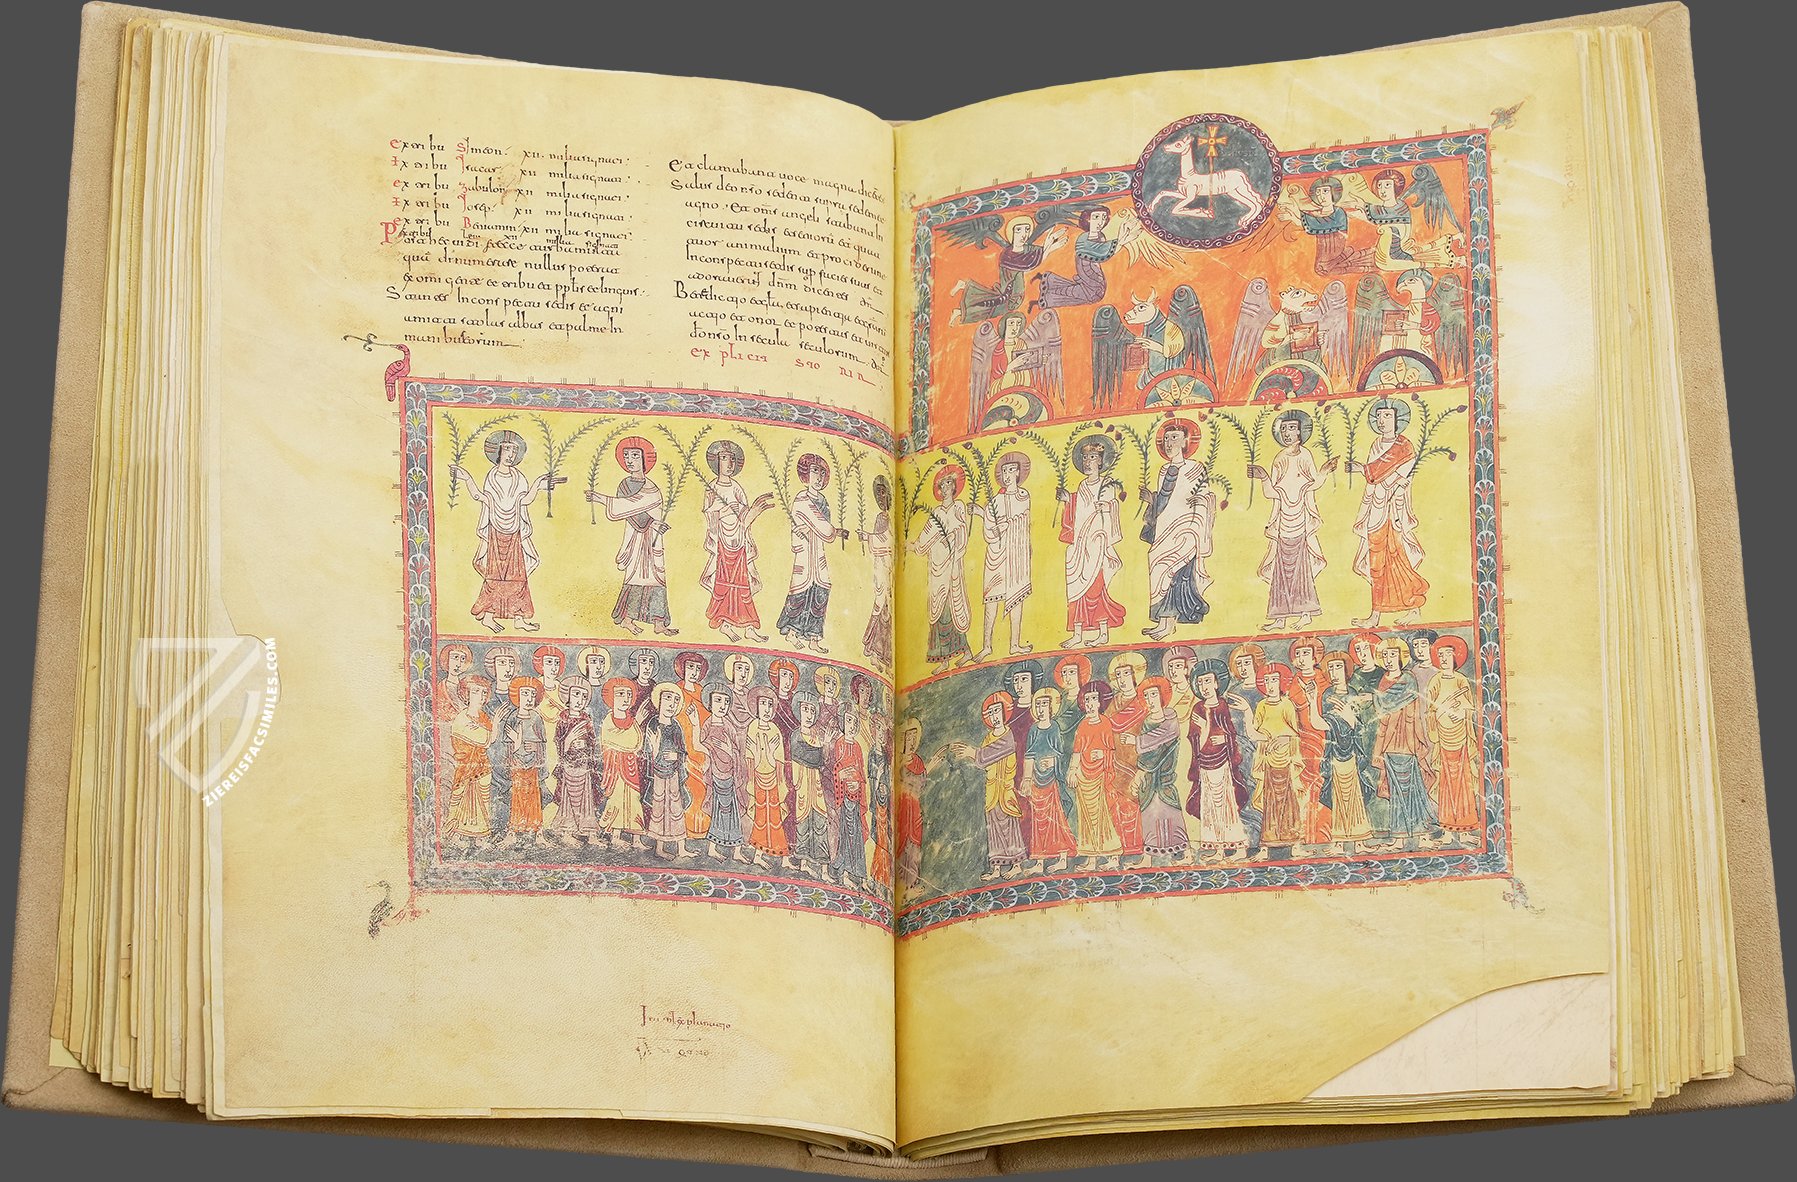 Ex tribu Simeon: XII milia signati:
Ix tribu Isacar: XII milia signati:
Ex tribu Zabulon XII milia signati:
Ix tribu Iosep: XII milia signati:
Ex tribu Beniamin XII milia signati:
ex tribu Leui XII milia signati
Post hec uidi et ecce turba multa
qua dinumerare nullus poterat
ex omi gente et tribu et pplis et linguis
Stantes in conspectu sedis et agni
amicti stolas albas et palme in
manibus eorum
Et clamabant uoce magna dicetes
Salus do nso sedenti supra sedem et
agno. Et oms angeli stabant in
circuitu sedis et seniorum et quat
tuor animalium et prociderunt
in conspectu sedis sup facies suas et
adorauerunt dnm dicentes am
Benedictio et claritas et sapientia et grati
actio et onor et potestas et
do nso in secula seculorum am
explicit storia
explanatio
ZIEREISFACSIMILES.COM